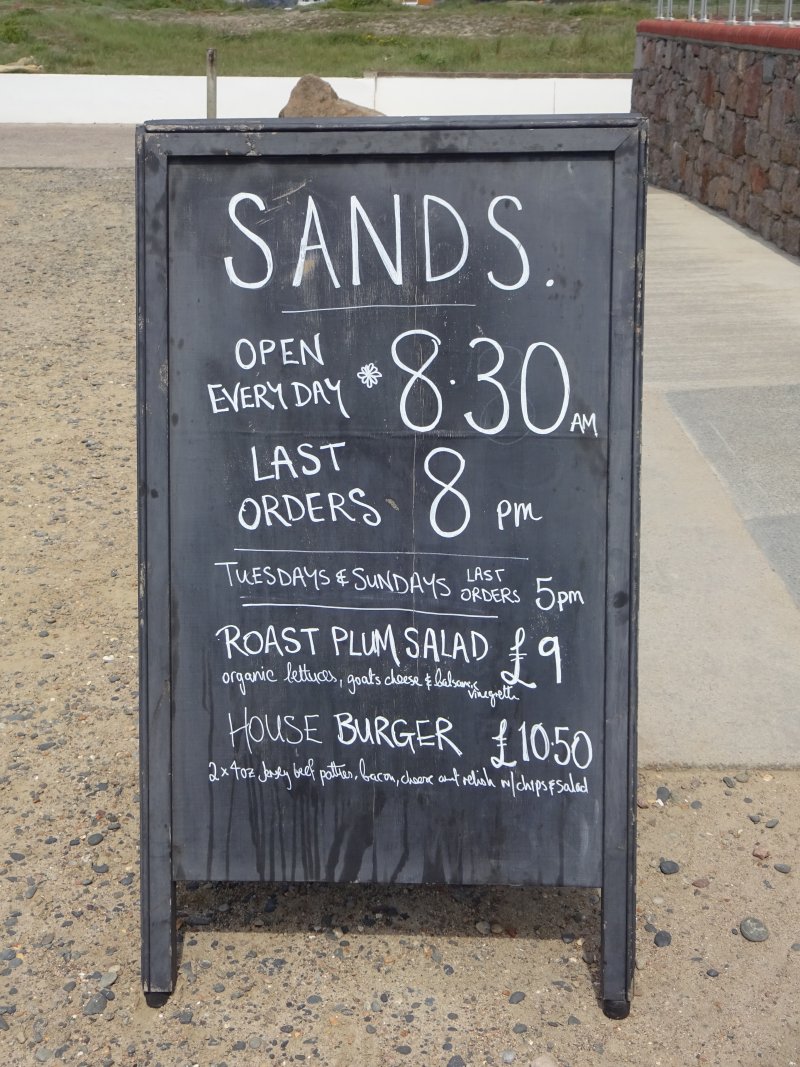 SANDS.
OPEN
EVERYDAY * 8·30 AM
LAST
ORDERS 8 pm
TUESDAYS & SUNDAYS LAST ORDERS 5pm
ROAST PLUM SALAD £9
organic lettuces, goats cheese & balsamic vinegrette
HOUSE BURGER £10·50
2 x 4oz Jersey beef patties, bacon, cheese and relish w/chips & salad